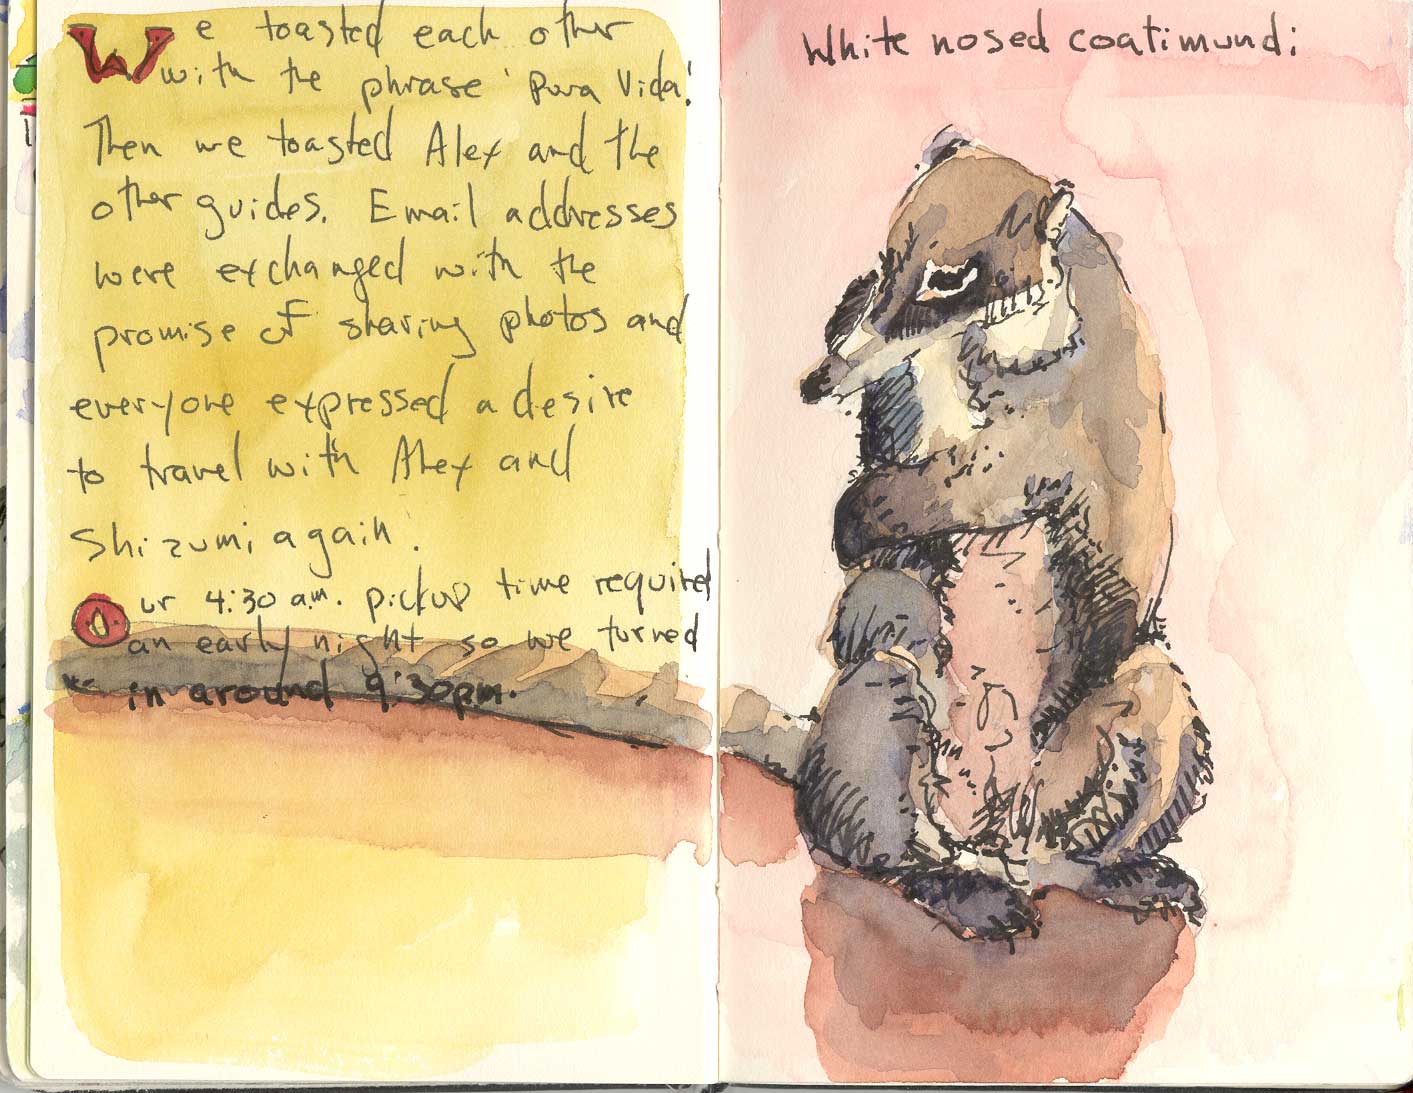 We toasted each other
with the phrase 'Pura Vida'.
Then we toasted Alex and the
other guides. Email addresses
were exchanged with the
promise of sharing photos and
everyone expressed a desire
to travel with Alex and
Shizumi again.
Our 4:30 a.m. pickup time required
an early night so we turned
in around 9:30pm.
White nosed coatimundi